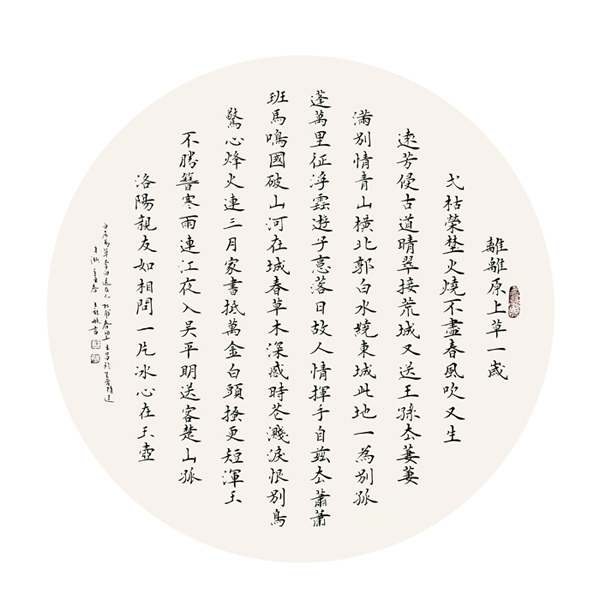 離離原上草一歲
弋枯榮埜火燒不盡春風吹又生
遠芳侵古道晴翠接荒城又送王孫厺萋萋
滿別情青山橫北郭白水繞東城此地一為別孤
蓬萬里征浮雲遊子意落日故人情揮手自茲厺蕭蕭
班馬鳴國破山河在城春草木深感時花濺淚恨別鳥
驚心烽火連三月家書抵萬金白頭搔更短渾玉
不勝簪寒雨連江夜入吳平明送客楚山孤
洛陽親友如相問一片冰心在玉壺
白居易草李白送友人杜甫春望王昌齡芙蓉樓送
辛漸